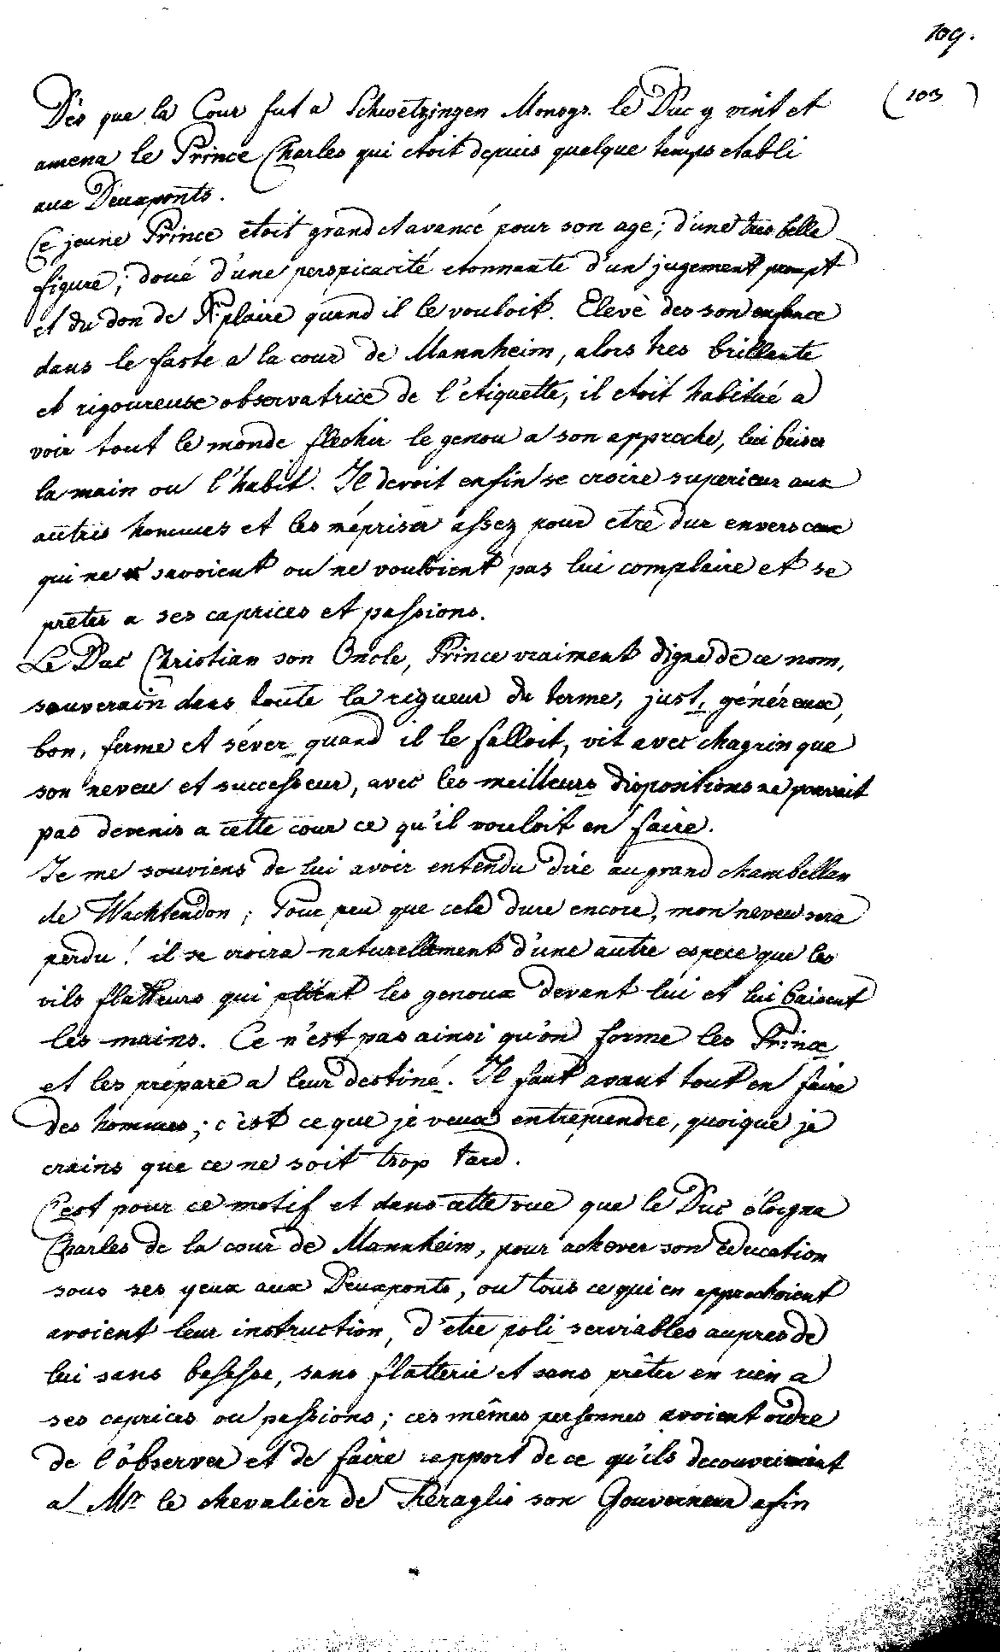 109.
(103)
Dès que la Cour fut a Schwetzingen Monsgr. le Duc y vint et
amena le Prince Charles qui etoit depuis quelque temps etabli
aux Deuxponts.
Ce jeune Prince etoit grand et avancé pour son age; d'une tres belle
figure; doué d'une perspicacité etonnante d'un jugement prompt
et du don de plaire quand il le vouloit. Elevé des son enfance
dans le faste a la cour de Mannheim, alors tres brillante
et rigoureuse observatrice de l'étiquette, il etoit habitué a
voir tout le monde flechir le genou a son approche, lui baiser
la main ou l'habit. Il devoit enfin se croire superieur aux
autres hommes et les mépriser assez pour etre dur envers ceux
qui ne savoient ou ne vouloient pas lui complaire et se
prêter a ses caprices et passions.
Le Duc Christian son Oncle, Prince vraiment digne de ce nom,
souverain dans toute la rigueur du terme, just, généreux,
bon, ferme et séver quand il le falloit, vit avec chagrin que
son neveu et successeur, avec les meilleurs dispositions ne pouvoit
pas devenir a cette cour ce qu'il vouloit en faire.
Je me souviens de lui avoir entendu dire au grand chambellan
de Wachtendon; Pour peu que cela dure encore, mon neveu sera
perdu! il se croira naturellement d'une autre espece que les
vils flatteurs qui plient les genoux devant lui et lui baisent
les mains. Ce n'est pas ainsi qu'on forme les Prince
et les prépare a leur destiné. Il faut avant tout en faire
des hommes; c'est ce que je veux entreprendre, quoique je
crains que ce ne soit trop tard.
C'est pour ce motif et dans cette vue que le Duc éloigna
Charles de la cour de Mannheim, pour achever son education
sous ses yeux aux Deuxponts, ou tous ce qui en approchoient
avoient leur instruction, d'etre poli serviables aupres de
lui sans bassesse, sans flatterie et sans prêter en rien a
ses caprices ou passions; ces mêmes personnes avoient ordre
de l'observer et de faire rapport de ce qu'ils decouvriroient
a Mr. le chevalier de Keraglio son Gouverneur afin